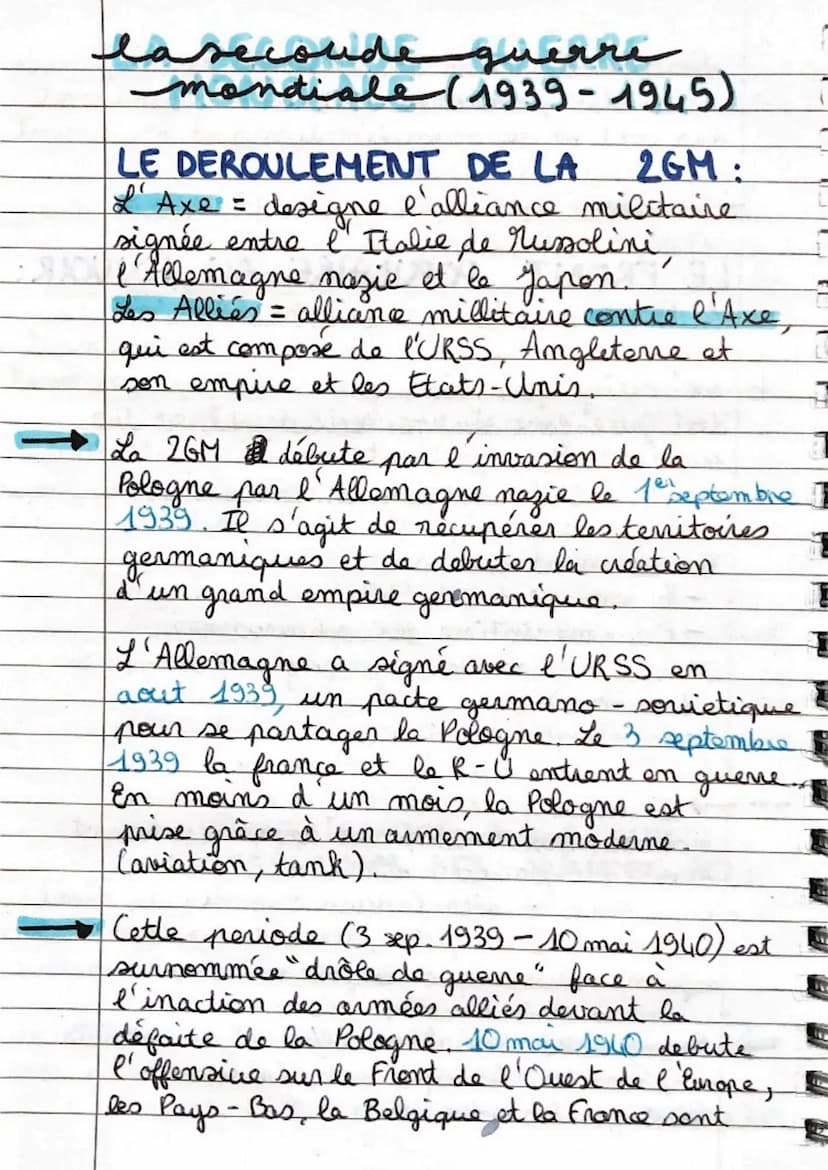 la seconde guerre
mondiale (1939 - 1945)
LE DEROULEMENT DE LA 2GM :
L'Axe = designe l'alliance militaire
signée entre l'Italie de Mussolini,
l'Allemagne nazie et le Japon.
Les Alliés = alliance millitaire contre l'Axe,
qui est composé de l'URSS, Angleterre et
son empire et les Etats-Unis.
La 2GM débute par l'invasion de la
Pologne par l'Allemagne nazie le 1er septembre
1939. Il s'agit de récupérer les territoires
germaniques et de debuter la création
d'un grand empire germanique.
L'Allemagne a signé avec l'URSS en
aout 1939, un pacte germano - sovietique
pour se partager la Pologne. Le 3 septembre
1939 la france et le R-U entrent en guerre.
En moins d'un mois, la Pologne est
prise grâce à un armement moderne.
(aviation, tank).
Cette periode (3 sep. 1939 - 10 mai 1940) est
surnommée "drôle de guerre" face à
l'inaction des armées alliés devant la
défaite de la Pologne. 10 mai 1940 debute
l'offensive sur le Front de l'Ouest de l'Europe,
les Pays-Bas, la Belgique et la France sont